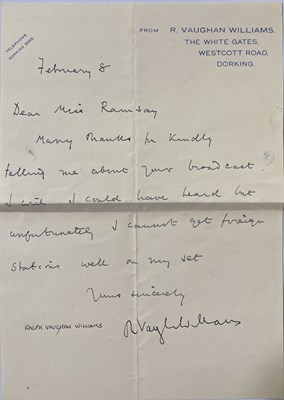 TELEPHONE
DORKING
FROM R. VAUGHAN WILLIAMS,
THE WHITE GATES,
WESTCOTT ROAD,
DORKING.
February 8
Dear Miss Ramsay
Many thanks for kindly
telling me about your broadcast.
I wish I could have heard but
unfortunately I cannot get foreign
stations well on my set
Yours sincerely
RALPH VAUGHAN WILLIAMS
R Vaughan Williams